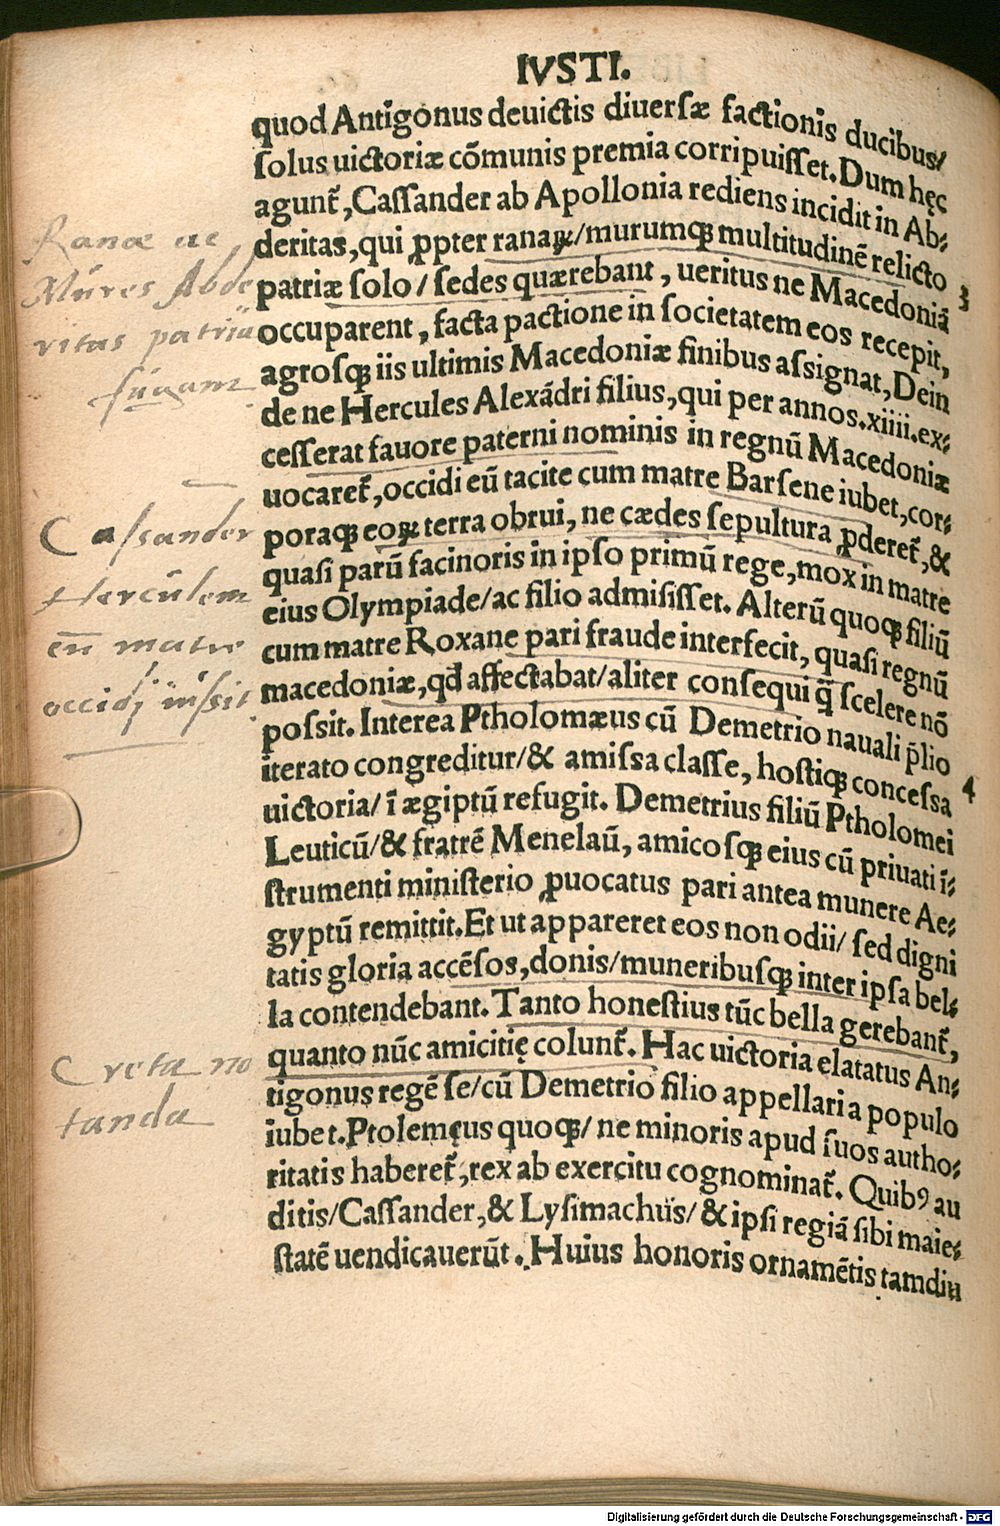 IVSTI.
quod Antigonus deuictis diuersæ factionis ducibus/
solus uictoriæ cōmunis premia corripuisset. Dum hęc
agunt̃, Cassander ab Apollonia rediens incidit in Ab-
deritas, qui ꝓpter ranaꝝ/murumqꝫ multitudinē relicto
patriæ solo/ sedes quærebant, ueritus ne Macedoniā
3
occuparent, facta pactione in societatem eos recepit,
agrosqꝫ iis ultimis Macedoniæ finibus assignat, Dein
de ne Hercules Alexādri filius, qui per annos.xiiii.ex-
cesserat fauore paterni nominis in regnū Macedoniæ
uocaret̃, occidi eū tacite cum matre Barsene iubet, cor-
poraqꝫ eoꝝ terra obrui, ne cædes sepultura ꝓderet̃, &
quasi parū facinoris in ipso primū rege, mox in matre
eius Olympiade/ac filio admisisset. Alterū quoqꝫ filiū
cum matre Roxane pari fraude interfecit, quasi regnū
macedoniæ, qd̃ affectabat/aliter consequi q̃ scelere nō
possit. Interea Ptholomæus cū Demetrio nauali p̄lio
iterato congreditur/& amissa classe, hostiqꝫ concessa
4
uictoria/ ī ægiptū refugit. Demetrius filiū Ptholomei
Leuticū/& fratrē Menelaū, amicosqꝫ eius cū priuati ī-
strumenti ministerio ꝓuocatus pari antea munere Ae-
gyptū remittit. Et ut appareret eos non odii/ sed digni
tatis gloria accēsos, donis/muneribusqꝫ inter ipsa bel-
la contendebant. Tanto honestius tūc bella gerebant̃,
quanto nūc amicitię colunt̃. Hac uictoria elatatus An-
tigonus regē se/cū Demetrio filio appellari a populo
iubet. Ptolemęus quoqꝫ/ ne minoris apud suos autho-
ritatis haberet̃, rex ab exercitu cognominat̃. Quibꝰ au
ditis/Cassander, & Lysimachus/ & ipsi regiā sibi maie-
statē uendicauerūt. Huius honoris ornamētis tamdiu
Ranæ ac
Mures Abde
ritas patria
fugant
Cassander
Herculem
cū matre
occidj iussit
Creta no
tanda
Digitalisierung gefördert durch die Deutsche Forschungsgemeinschaft - DFG